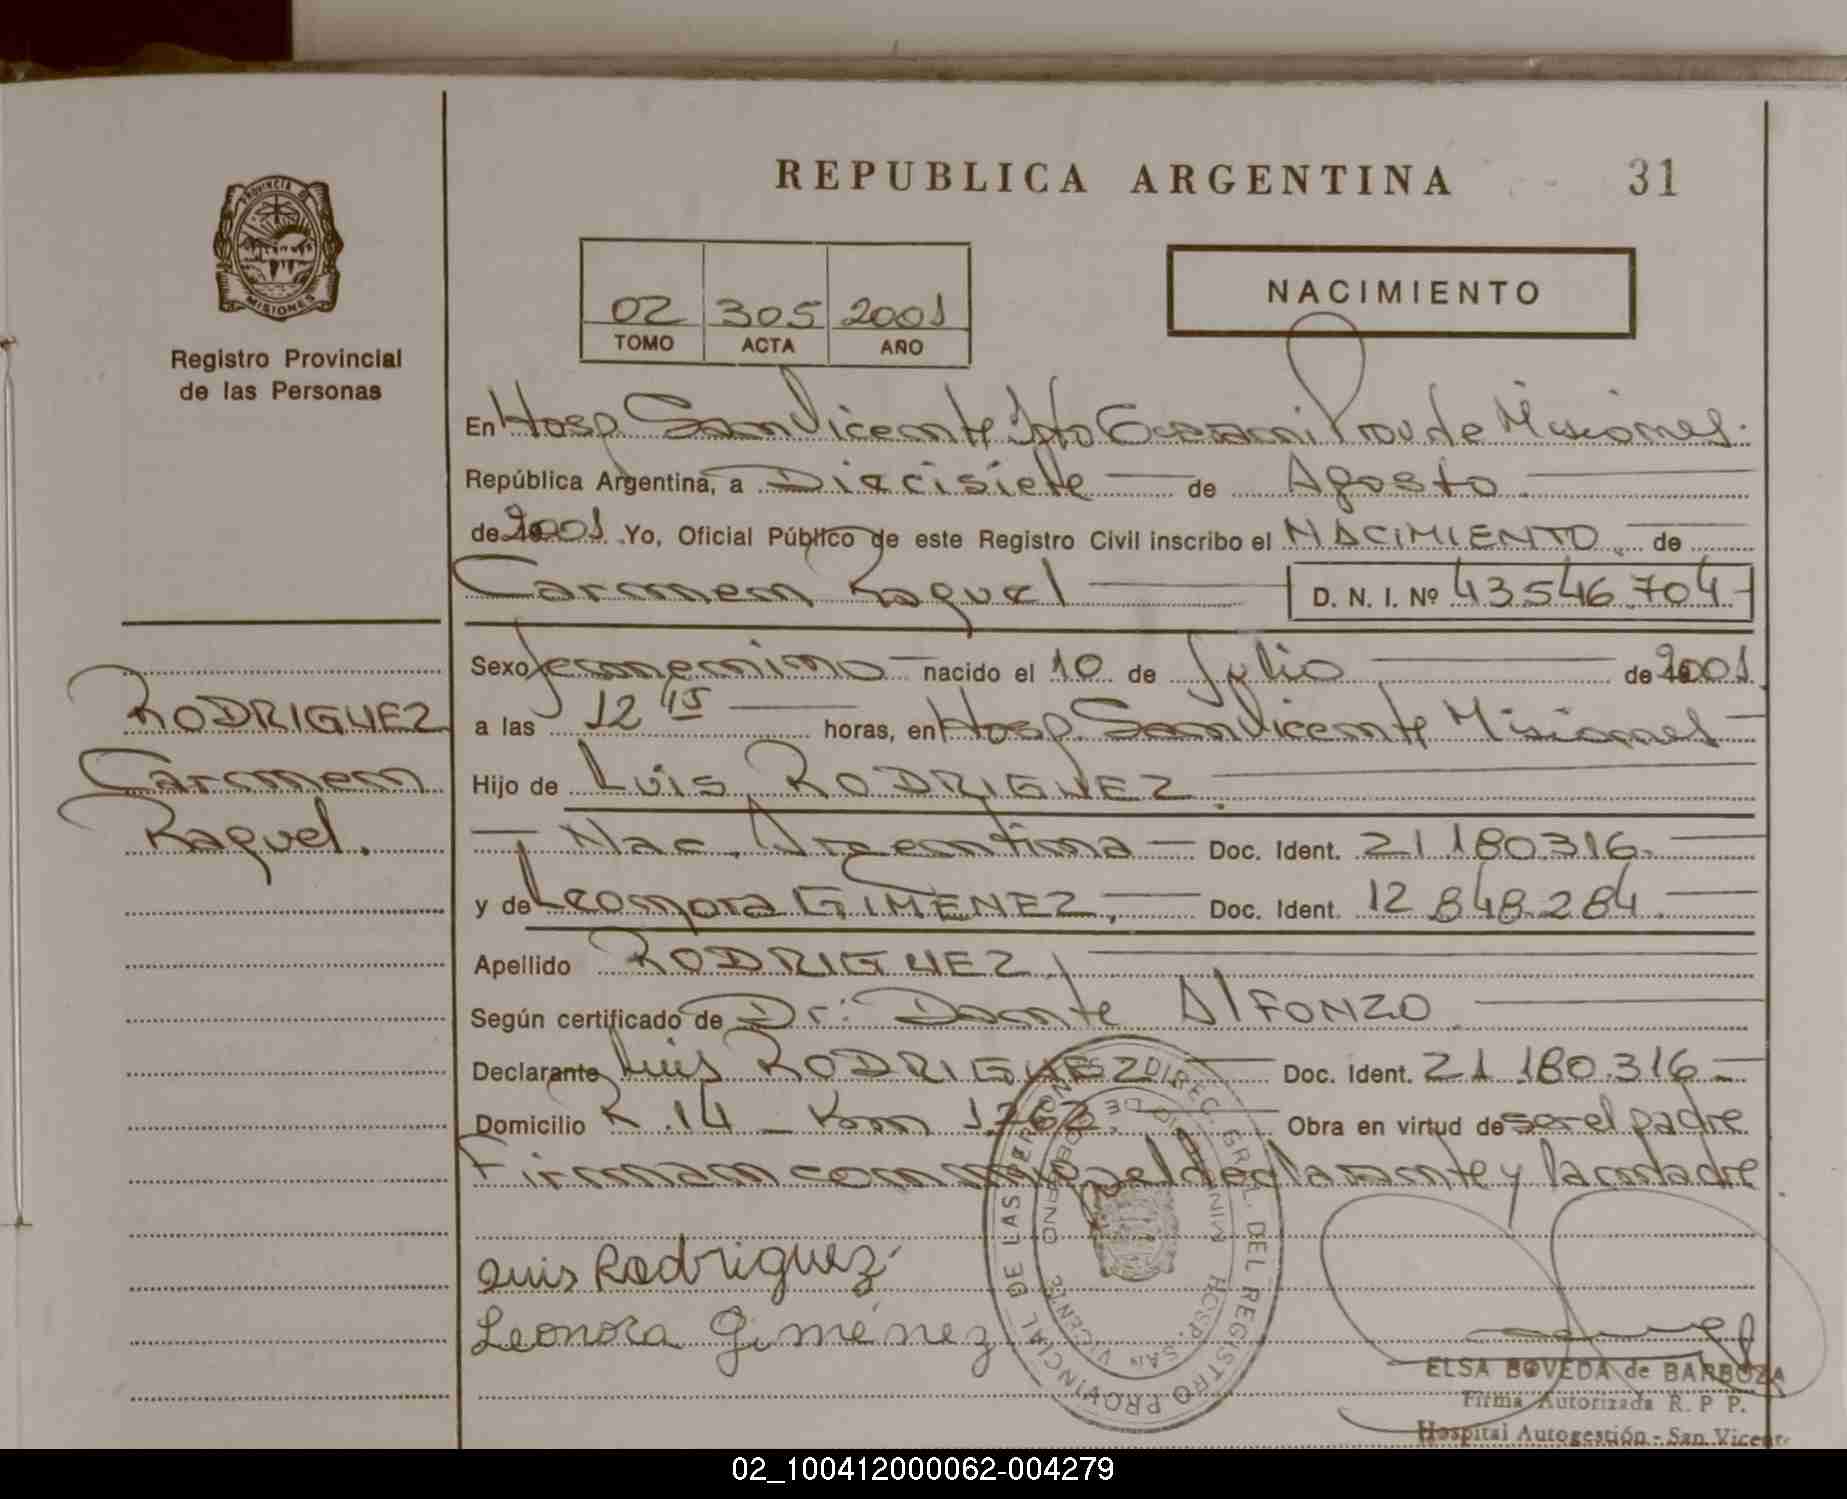 REPUBLICA ARGENTINA 31
PROVINCIA DE
MISIONES
Registro Provincial
de las Personas
02 305 2001
TOMO ACTA AÑO
NACIMIENTO
En Hosp. San Vicente Dpto Guarani Prov de Misiones.
República Argentina, a Diecisiete de Agosto
de 2001 Yo, Oficial Público de este Registro Civil inscribo el NACIMIENTO de
Carmen Raquel D. N. I. Nº 43546.704
RODRIGUEZ
Carmen
Raquel.
Sexo femenino nacido el 10 de Julio de 2001
a las 12 15 horas, en Hosp. San Vicente Misiones
Hijo de Luis RODRIGUEZ.
Nac. Argentina Doc. Ident. 21.180.316.
y de Leonora GIMENEZ, Doc. Ident. 12.848.284.
Apellido RODRIGUEZ
Según certificado de Dr: Dante AlFONZO
Declarante Luis RODRIGUEZ Doc. Ident. 21.180.316
Domicilio R.14 - Km 1.262. Obra en virtud de ser el padre
Firman conmigo el declarante y la madre.
Luis Rodriguez
Leonora Giménez
DIREC. GRAL. DEL REGISTRO PROVINCIAL DE LAS PERSONAS
MINISTERIO DE GOBIERNO
HOSP. SAN VICENTE
ELSA BOVEDA de BARBOZA
Firma Autorizada R. P. P.
Hospital Autogestión - San Vicente
02_100412000062-004279